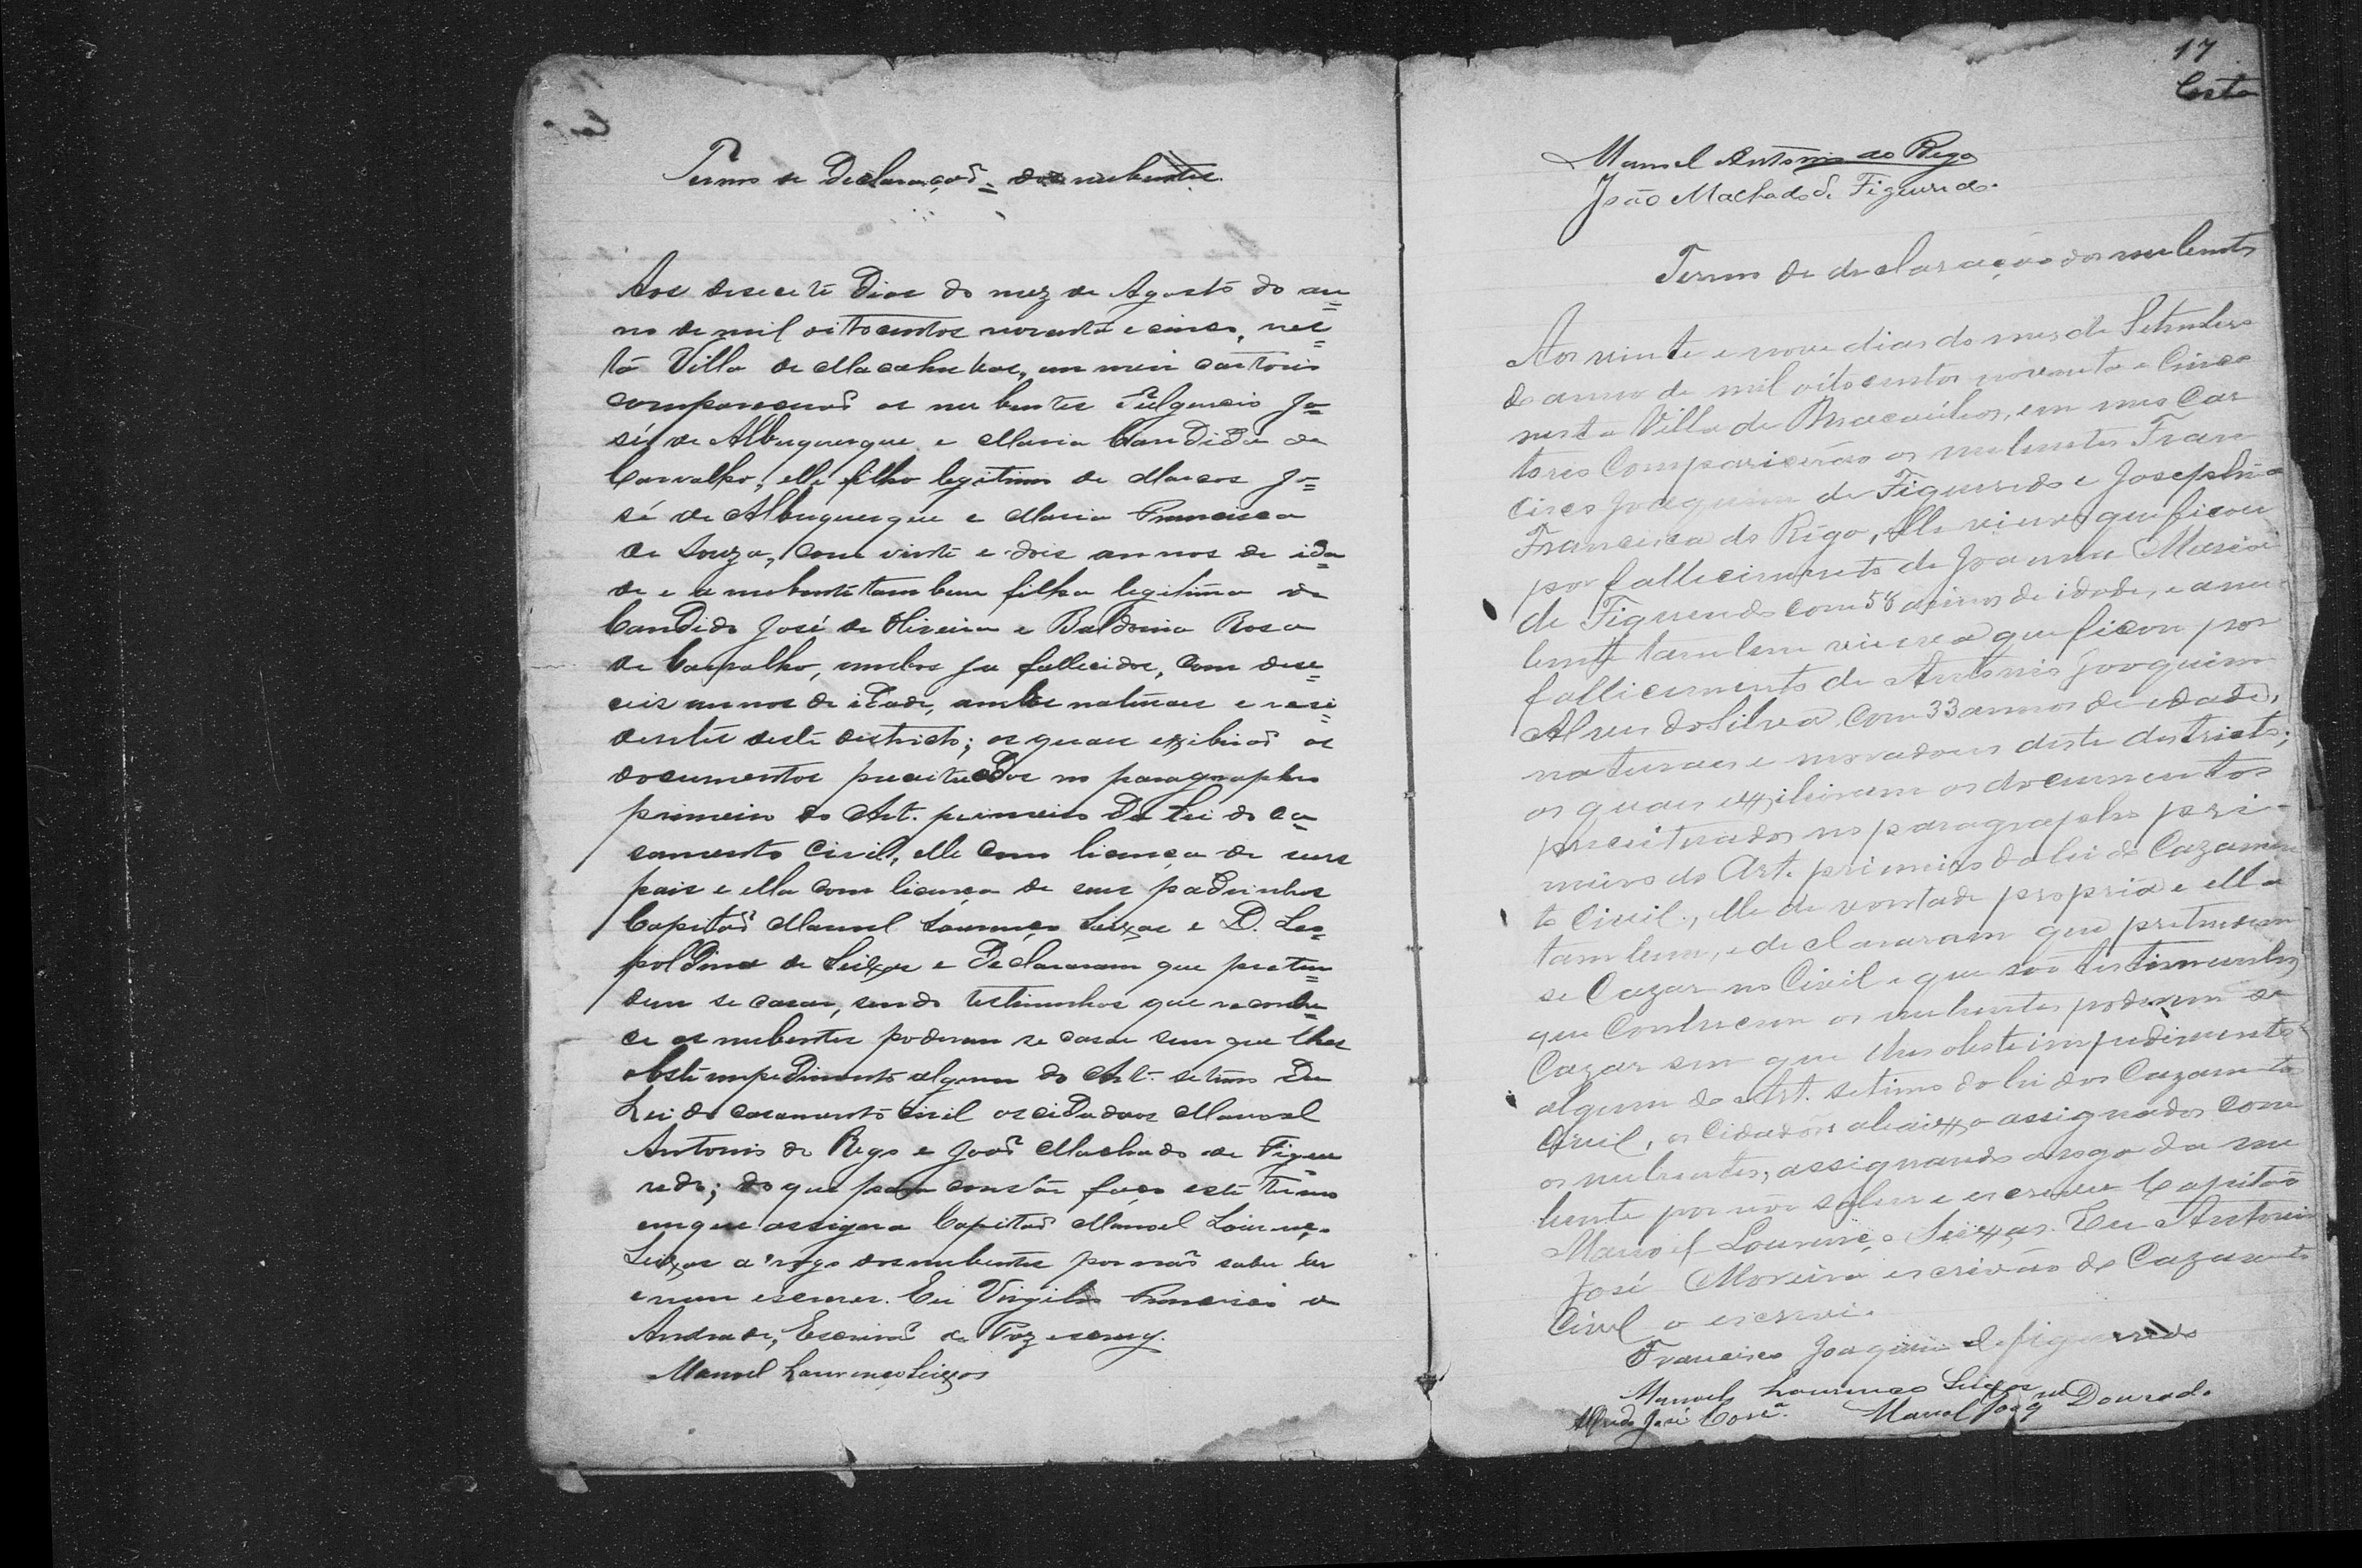 Termo de Declaração = dos nubentes.
Aos desecete Dias do mez de Agosto do an=
no de mil oitocentos noventa e cinco, nes=
ta Villa de Macahubas, em meu cartorio
compareceraõ os nubentes Fulgencio Jo=
sé de Albuquerque e Maria Candida de
Carvalho, elle filho legitimo de Marcos Jo=
sé de Albuquerque e Maria Francisca
de Souza, com vinte e dois annos de ida=
de e a nubente tambem filha legitima de
Candido José de Oliveira e Baldoina Rosa
de Carvalho, ambos ja fallecidos, com dese=
ceis annos de idade, ambos naturaes e resi=
dentes deste destricto; os quaes exhibiraõ os
documentos preceituados no paragrapho
primeiro do Art. primeiro Da Lei do ca=
samento Civil, elle com licença de seus
pais e ella com licença de seus padrinhos
Capitaõ Manoel Lourenço Seixas e D. Leo=
poldina de Seixas e Declararam que preten=
dem se casar, sendo testimunhas que reconhe=
ce os nubentes poderem se casar sem que lhes
obste impedimento algum do Art. setimo Da
Lei do casamento civil os cidadaos Manoel
Antonio do Rego e Joaõ Machado de Figue
redo; do que para constar faço este termo
em que assigna Capitaõ Manoel Lourenço
Seixas a rogo dos nubentes por naõ saber ler
e nem escrever. Eu Virgilio Francisco de
Andrade, Escrivaõ de Paz escrevy.
Manoel Lourenço Seixas
17
Costa
Manoel Antonio do Rego
João Machado de Figueredo.
Termo de declaração dos nubentes
Aos vinte e nove dias do mes de Setembro
do anno de mil oitocentos noventa e Cinco
nesta Villa de Macaúbas, em meo Car
torio Compariceráo os nubentes Fran
cisco Joaquim de Figueredo e Josephina
Francisca do Rêgo, Elle viuvo que ficou
por fallecimento de Joanna Maria
de Figueredo com 58 annos de idade, e a nu
bente tambem viuva que ficou por
fallicimento de Antonio Joaquim
Alves da Silva Com 33 annos de edade,
naturaes e moradores deste destricto;
os quaes exxibiram os documentos
preceituados no paragrapho pri-
meiro do Art. primeiro da lei do Cazamen
to Civil., elle de vontade propria e ella
tambem, e declararam que pretendem
se Cazar no Civil e que são testimunhas
que Conhecem os nubentes poderem se
Cazar sem que lhes obste impedimento
algum do Art. setimo da lei dos Cazamento
Civil, os Cidadãos abaixxo assignados com
os nubentes, assignando a rogo da nu
bente por não saber e escrever Capitão
Manoel Lourenço Seixxas. Eu Antonio
José Moreira escrivão do Cazamento
Civil o escrevi.
Francisco Joaquim de figueredo
Manoel Lourenço Seixas
Alfredo José Corrª. Manoel Joaqm Dourado